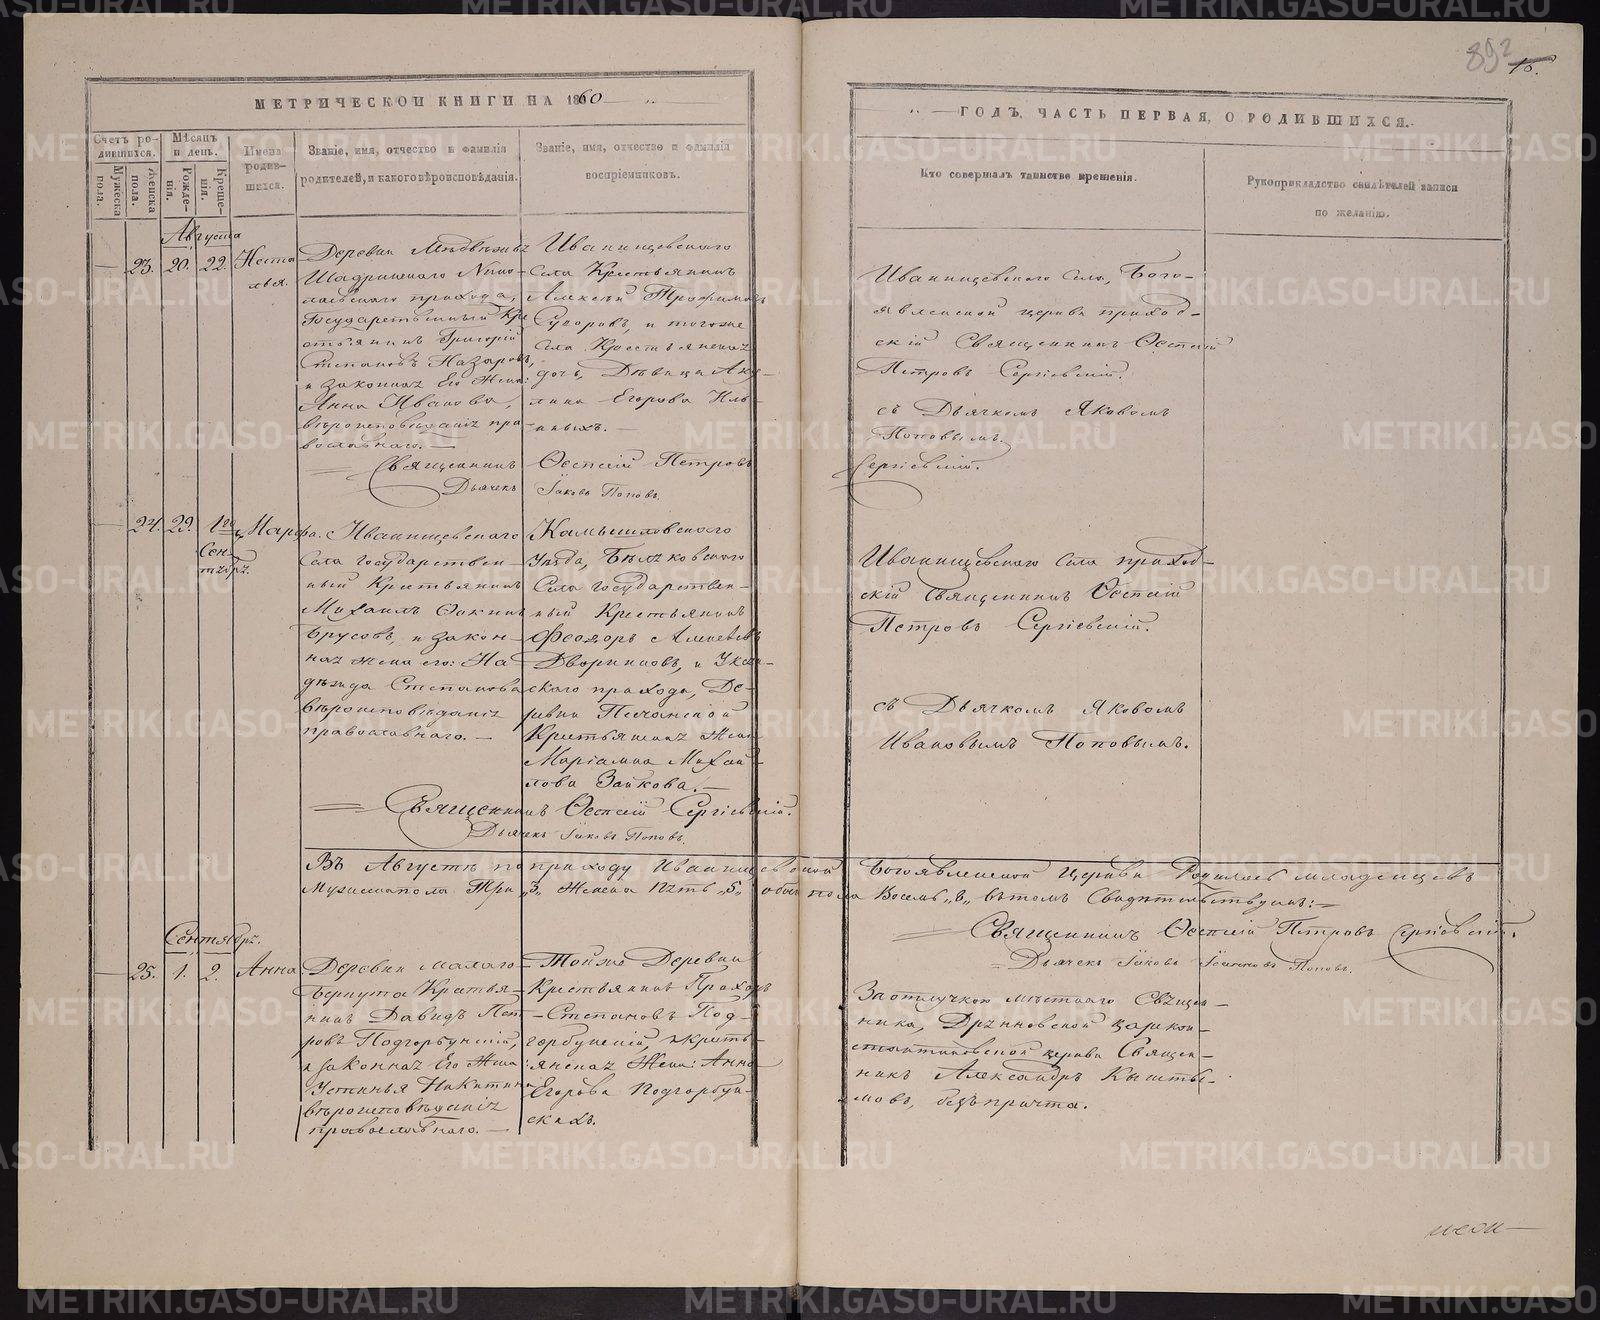 892
15.
МЕТРИЧЕСКОЙ КНИГИ НА 1860
ГОДЪ, ЧАСТЬ ПЕРВАЯ, О РОДИВШИХСЯ.
Счетъ родившихся.
Мужеска пола.
Женска пола.
Мѣсяцъ и день.
Рожденія.
Крещенія.
Имена родившихся.
Званіе, имя, отчество и фамилія
родителей, и какого вѣроисповѣданія.
Званіе, имя, отчество и фамилія
воспріемниковъ.
Кто совершалъ таинство крещенія.
Рукоприкладство свидѣтелей записи
по желанію.
Августа
23. 20. 22.
Деревни
Шадринскаго Нико-
лаевскаго прихода,
Государственный Кре
стьянинъ Григорій
Степановъ Назаровъ,
и законная Его Жена:
Анна Иванова,
вѣроисповѣданія пра
вославнаго.
Иванищевскаго
Села Крестьянинъ
Алексѣй Трофимовъ
Суворовъ, и тогоже
Села Крестьянская
дочь, Дѣвица Аку-
лина Егорова Иль-
иныхъ.
Иванищевскаго Села, Бого-
явленской церкви приход-
скій Священникъ Ѳеоктистъ
Петровъ Сергіевскій.
съ Дьячкомъ Яковомъ
Поповымъ.
Сергіевскій.
Священникъ Петровъ
Дьячекъ Іаковъ Поповъ.
24. 29. 1го
Сен-
тября.
Марфа.
Иванищевскаго
Села государствен-
ный Крестьянинъ
Михаилъ
Брусовъ, и закон-
ная жена его: На
дѣжда Степанова
вѣроисповѣданія
православнаго.
Камышловскаго
Уѣзда, Бѣляковскаго
Села государствен-
ный Крестьянинъ
Феодоръ Алексѣевъ
Дворниковъ, и
скаго прихода, Де-
ревни Песчанской
Крестьянская Жена
Маріамна Михаи-
лова Зайкова.
Иванищевскаго Села приход-
скій Священникъ
Петровъ Сергіевскій.
съ Дьячкомъ Яковомъ
Ивановымъ Поповымъ.
Священникъ Сергіевскій.
Дьячекъ Іаковъ Поповъ.
Въ Августѣ по приходу Иванищевской Богоявленской Церкви Родилось младенцевъ
Мужескапола Три „3„ Женска пять „5„ обоегопола Восемь „8„ вътомъ Свидѣтельствуемъ:
Священникъ Петровъ Сергіевскій.
Дьячекъ Іаковъ Іоанновъ Поповъ.
Сентября.
25. 1. 2. Анна
Деревни Малаго-
Беркута Крестья-
нинъ Давидъ Пет-
ровъ Подгорбунскій,
и законная Его Жена:
Устинья Никитина
вѣроисповѣданія
православнаго.
Тойже Деревни
Крестьянинъ Прохоръ
Степановъ Под-
горбунскій, и кресть-
янская Жена: Анна
Егорова Подгорбун-
ская.
Заотлучкою мѣстнаго Священ-
ника,
церкви Священ-
никъ Александръ Кышты-
мовъ, безъ причта.
METRIKI.GASO-URAL.RU